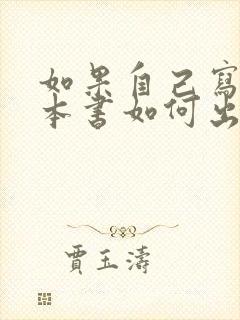 如果自己寫
本書如何出
賈玉濤